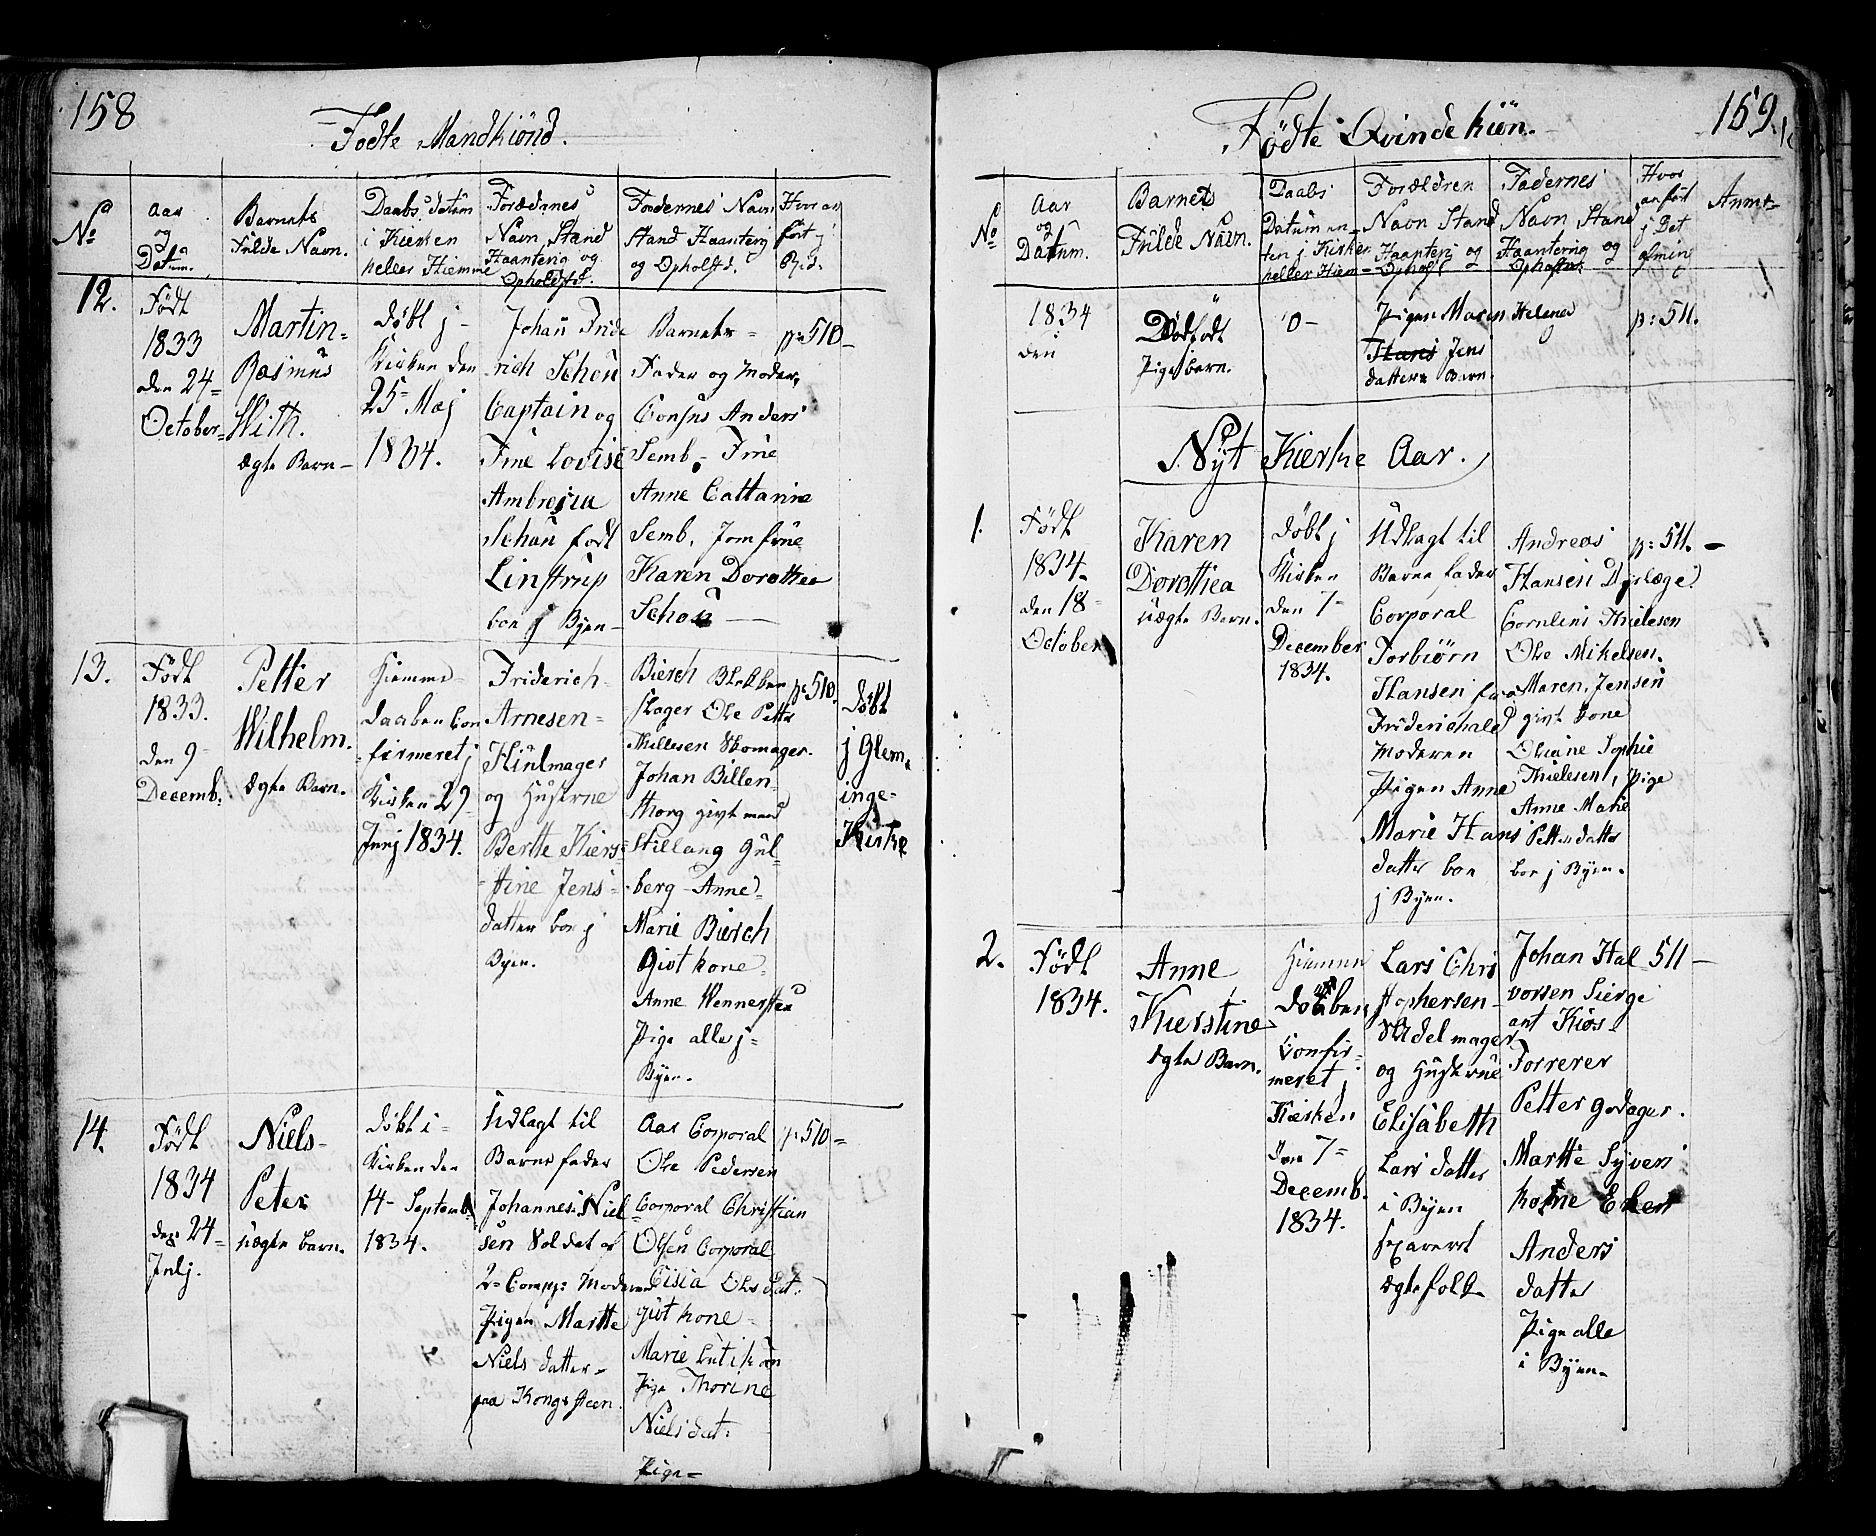 158
Fødte Mandkiønd.
No
Aar
og
Datum.
Barnets
Fulde Navn.
Daabs datum
i Kierken
heller Hiemme
Forældrenes
Navn, Stand
Haantering og
Opholdstd.
Faddernes Navn
Stand Haantering
og Opholstd.
12.
Født
1833
den 24-
October-
Martin-
Rasmus
With.
Ægte Barn-
Døbt j-
Kirken den
25- Maj
1834.
Johan Fride
rich Schøu
Captain og
Frue Lovise
Ambrosia
Schøu født
Linstrup
boe j Byen-
Barnets-
Fader og Moder,
Consus Anders
Semb,- Frue
Anne Cattarine
Semb, Jomfrue
Karen Dorothea
Schøu
p: 510-
13.
Født
1833.
den 9-
Decemb:
Petter
Wilhelm.
Ægte Barn.
Hiemme-
daaben Con
firmeret j
Kirken 29-
Junj 1834.
Friderich-
Arnesen-
Hiulmager
og Husterue
Berthe Kiers-
tine Jens-
datter boe j
Byen.
Biersch Blikken
slager Ole Petter
Nillesen Skomager.
Johan Billen-
thorg givt mand
Stillang Gul-
berg- Anne
Marie Biersch
Givt kone-
Anne Wennersteu
Pige alle j-
Byen-
p: 510.
Døbt
j Glem-
inge-
Kirke
14.
Født
1834
den 24-
Julj.
Niels-
Peter
Uægte barn-
Døbt i-
Kirken den
14- Septemb.
1834.
Udlagt til
Barne fader
Johannes Niel-
sen Soldat af
2- Comp: Moderen
Pigen Marthe
Niels datter-
paa Kongsteen.
Aas Corporal
Ole Pedersen
Corporal Christian
Olsen Corporal
Cisia Olesdat:
givt kone-
Marie
Pige Thorine
Nielsdat:
Pige-
p: 510-
159.
Fødte Qvindekiøn.
No
Aar
og
Datum.
Barnets
Fulde Navn.
Daabs
Datum en-
ten j Kirken
heller Hiem-
Forældren
Navn Stand
Haantering og
Ophold
Fadernes
Navn Stand
Haantering og
Hvor
anført
j Det
Anme-
1834
den
Dødfødt
Pigebarn.
0-
Pigen Maren Helena
Hans Jens
datters Barn.
p: 511.
Nÿt Kierke Aar.
1.
Født
1834-
den 18-
October
Karen
Dorothea
Uægte Barn.
Døbt j
Kirken
den 7-
December
1834.
Udlagt til
Barne fader
Corporal
Torbiørn
Hansen fra
Friderichald
Moderen
Pigen Anne
Marie Hans
datter boe
j Byen.
Andreas
Hansen Dyrlæge
Cornlius Thielesen
Ole Mikelsen.
Maren, Jensen
givt kone
Oliane Sophie
Thielesen, Pige
Anne Marie
Pettersdatter
boe j Byen.
p: 511.-
2.
Født
1834.
Anne
Kierstine
Ægte Barn.
Hiemme
Døbben
Confir-
meret j
Kierken
den 7-
Decemb.
1834.
Lars Chris
tophersen-
Sadelmager
og Husterue
Elisabeth
Lars datter
i Byen
separert
Ægtefolk
Johan Hal
vorsen Sierge
ant Kiøs-
Forrerer
Petter godager.
Marthe Syvers
kone
Anders
datter
Pige alle
i Byen-
511-